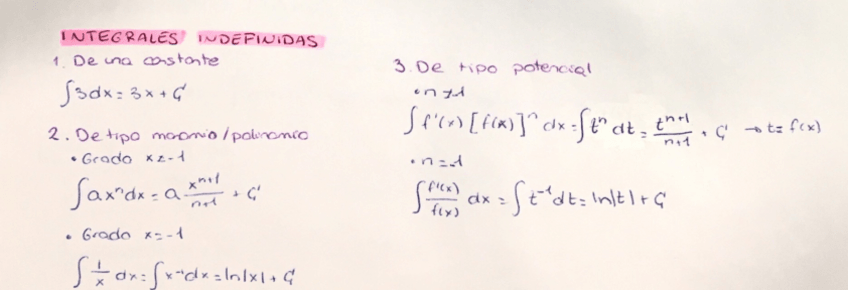 INTEGRALES INDEFINIDAS
1. De una constante
∫3dx = 3x + C
2. De tipo monomio/polinomio
• Grado x ≠ -1
∫axⁿdx = a xⁿ⁺¹/n+1 + C
• Grado x = -1
∫ 1/x dx = ∫x⁻¹dx = ln|x| + C
3. De tipo potencial
• n ≠ 1
∫f'(x) [f(x)]ⁿ dx = ∫tⁿ dt = tⁿ⁺¹/n+1 + C → t = f(x)
• n = -1
∫ f'(x)/f(x) dx = ∫t⁻¹dt = ln|t| + C